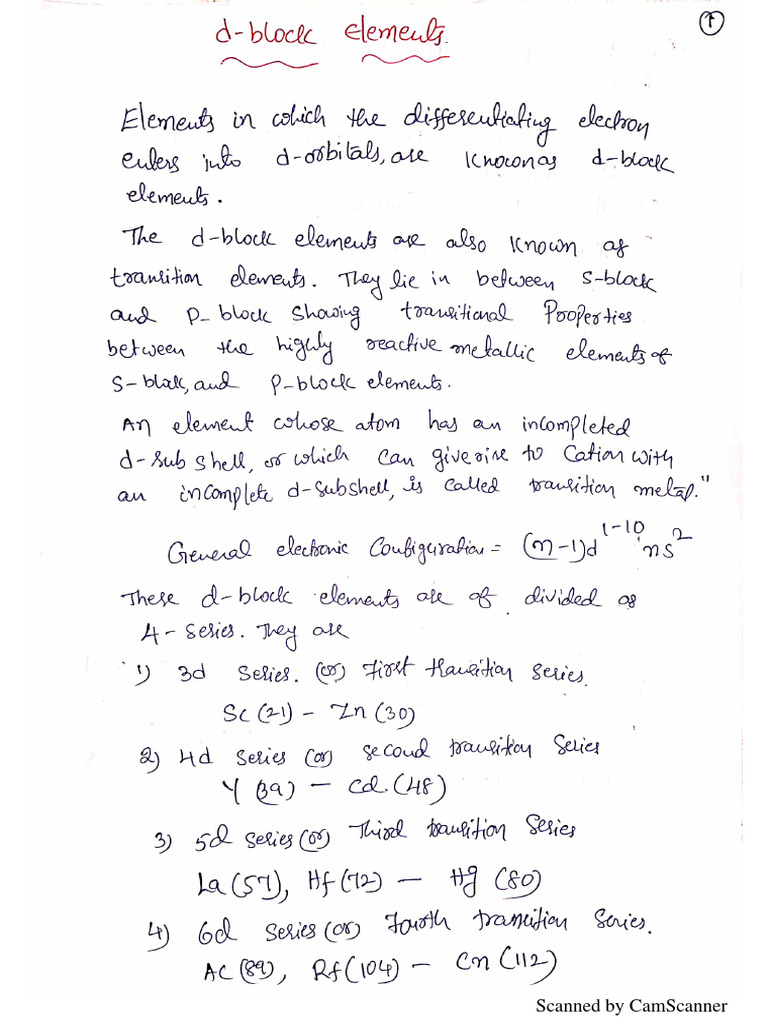 d-block elements.
1
Elements in which the differentiating electron
enters into d-orbitals, are known as d-block
elements.
The d-block elements are also known as
transition elements. They lie in between s-block
and p-block showing transitional Properties
between the highly reactive metallic elements of
s-block, and p-block elements.
An element whose atom has an incompleted
d-sub shell, or which can give rise to Cation with
an incomplete d-subshell, is called transition metal."
General electronic Configuration = (n-1)d^1-10 ns^2
These d-block elements are of divided as
4-series. They are
1) 3d series. (or) First transition series.
Sc (21) - Zn (30)
2) 4d series (or) second transition series
Y (39) - Cd. (48)
3) 5d series (or) Third transition series
La (57), Hf (72) - Hg (80)
4) 6d series (or) Fourth transition series.
AC (89), Rf (104) - Cn (112)
Scanned by CamScanner